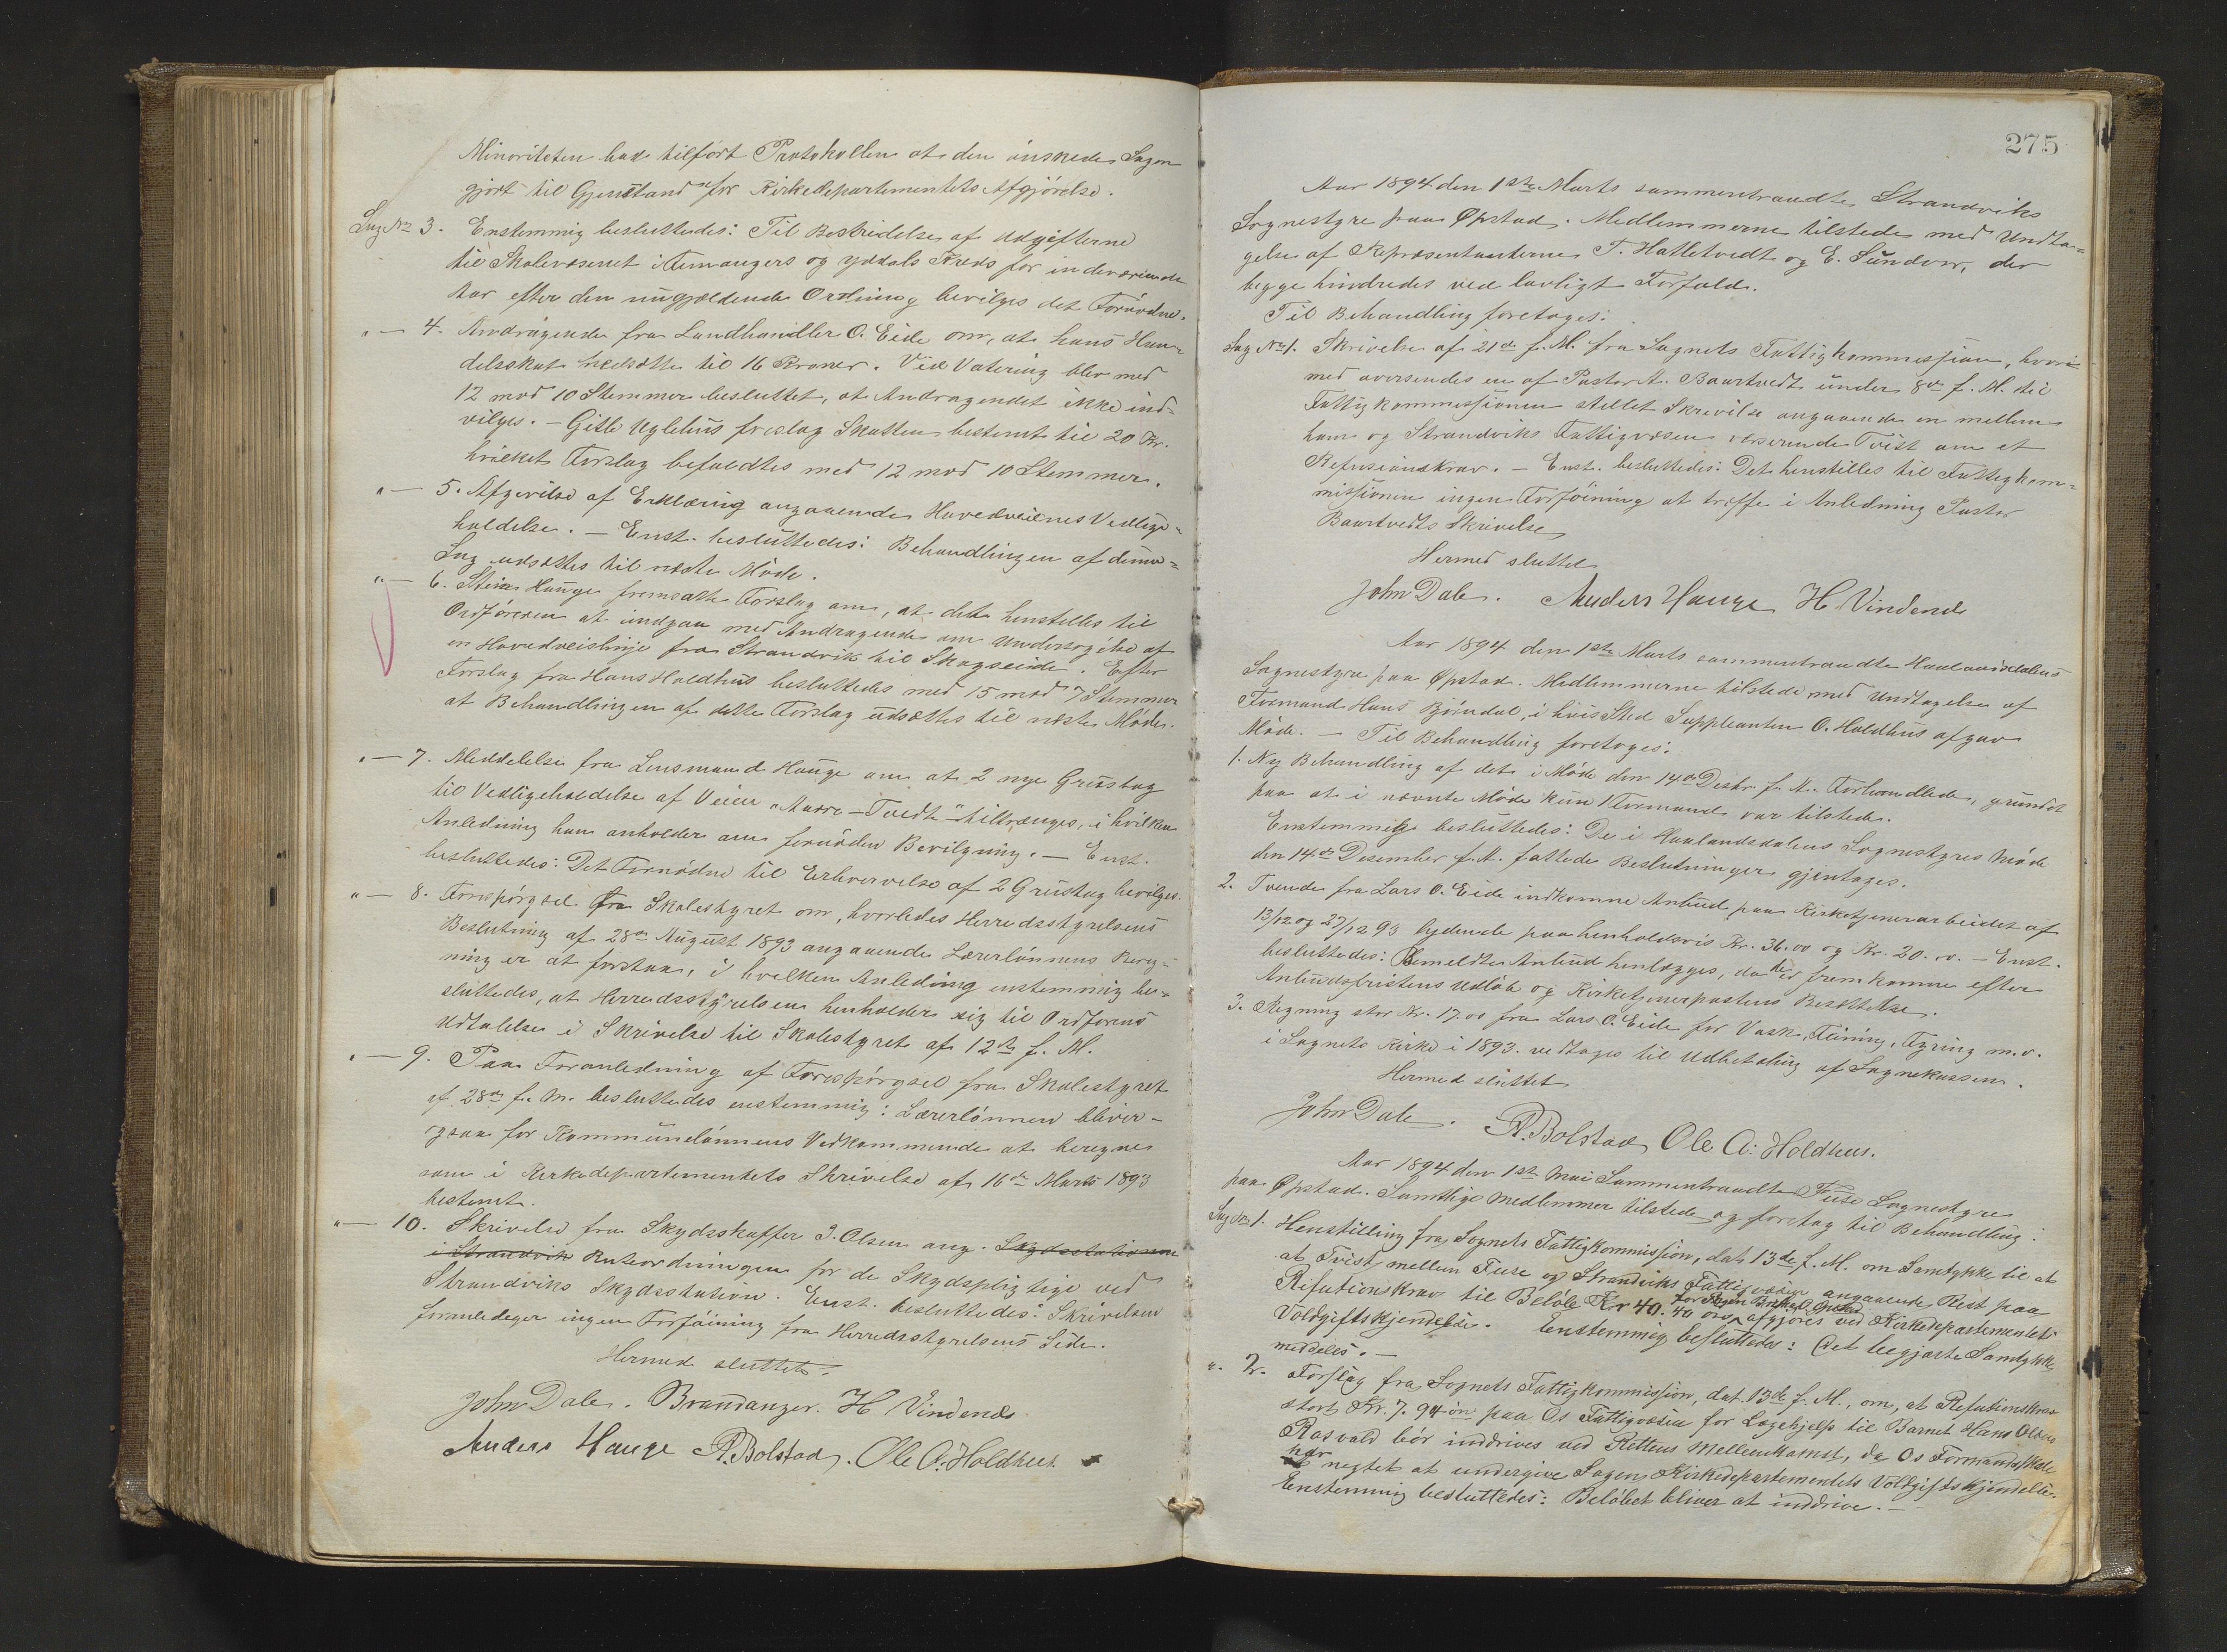 Minoriteten har tilført Protokollen at den ønskede Sagen
gjort til Gjenstand for Kirkedepartementets Afgjørelse.
Sag No 3. Enstemmig besluttedes: Til Bestridelse af Udgifterne
til Skolevæsenet i Amangers og Yddals Kreds for indeværende
Aar efter den nugjældende Ordning bevilges det Fornødne.
" — 4. Andragende fra Landhandler O. Eide om, at hans Han-
delsskat nedsættes til 16 Kroner. Ved Votering blev med
12 mod 10 Stemmer besluttet, at Andragendet ikke ind-
vilges. — Gitle Uglehus foreslog Skatten bestemt til 20 Kr.
hvilket Forslag befaldtes med 12 mod 10 Stemmer.
" — 5. Afgivelse af Erklæring angaaende Hovedveienes Vedlige-
holdelse. — Enst. besluttedes: Behandlingen af denne
Sag udsættes til næste Møde.
" — 6. Stein Hauge fremsatte Forslag om, at det henstilles til
Ordføreren at indgaa med Andragende om Undersøgelse af
en Hovedveislinje fra Strandvik til Skogseide. Efter
Forslag fra Hans Holdhus besluttedes med 15 mod 7 Stemmer
at Behandlingen af dette Forslag udsættes til næste Møde.
" — 7. Meddelelse fra Lensmand Hauge om at 2 nye Grustag
til Vedligeholdelse af Veien "Aarre - Tvedt" tiltrænges, i hvilken
Anledning han anholder om fornøden Bevilgning. — Enst.
besluttedes: Det Fornødne til Erhvervelse af 2 Grustag bevilges.
" — 8. Forespørgsel fra Skolestyret om, hvorledes Herredsstyrelsens
Beslutning af 28de August 1893 angaaende Lærerlønnens Bereg-
ning er at forstaa, i hvilken Anledning enstemmig be-
sluttedes, at Herredsstyrelsen henholder sig til Ordførens
Udtalelse i Skrivelse til Skolestyret af 12te f. M.
" — 9. Paa Foranledning af Forespørgsel fra Skolestyret
af 28de f. M. besluttedes enstemmig: Lærerlønnen bliver
ogsaa for Kommunelønnens Vedkommende at beregne
som i Kirkedepartementets Skrivelse af 16de Marts 1893
bestemt.
" — 10. Skrivelse fra Skydsskaffer J. Olsen ang. Skydsstationen
i Strandvik Ruteordningen for de Skydspligtige ved
Strandviks Skydsstation. Enst. besluttedes: Skrivelsen
foranlediger ingen Forføining fra Herredsstyrelsens Side.
Hermed sluttet.
John Dale. Brandanger. H Vindenes
Anders Hauge A. Bolstad. Ole A. Holdhus.
275
Aar 1894 den 1ste Marts sammentraadte Strandviks
Sognestyre paa Opstad. Medlemmerne tilstede med Undta-
gelse af Repræsentanterne T. Hatletvedt og E. Sundvor, der
begge hindredes ved lovligt Forfald.
Til Behandling foretoges:
Sag No 1. Skrivelse af 21de f. M. fra Sognets Fattigkommission, hvori-
med oversendes en af Pastor A. Baartvedt under 8de f. M. til
Fattigkommissionen stillet Skrivelse angaaende en mellem
ham og Strandviks Fattigvæsen værserende Tvist om et
Refusionskrav. — Enst. besluttedes: Det henstilles til Fattigkom-
missionen ingen Forføining at træffe i Anledning Pastor
Baartvedts Skrivelse
Hermed sluttet
John Dale. Anders Hauge H Vindenes
Aar 1894 den 1ste Marts sammentraadte Haalandsdalens
Sognestyre paa Opstad. Medlemmerne tilstede med Undtagelse af
Formand Hans Bjørndal, i hvis Sted Suppleanten O. Holdhus afgav
Møde. — Til Behandling foretoges:
1. Ny Behandling af det i Møde den 14de Desbr. f. A. Forhandlede, grundet
paa at i nævnte Møde kun 1 Formand var tilstede.
Enstemmig besluttedes: De i Haalandsdalens Sognestyres Møde
den 14de Desember f. A. fattede Beslutninger gjentages.
2. Tvende fra Lars O. Eide indkomne Anbud paa Kirketjenerarbeidet af
13/12 og 27/12 93 lydende paa henholdsvis Kr. 36.00 og Kr. 20.00. — Enst.
besluttedes: Bemeldte Anbud henlægges, da de er fremkomne efter
Anbudsfristens Udløb og Kirketjenerpostens Besættelse.
3. Regning stor Kr. 17.00 fra Lars O. Eide for Vask, Feining, Fyring m. v.
i Sognets Kirke i 1893. vedtages til Udbetaling af Sognekassen.
Hermed sluttet
John Dale. A. Bolstad Ole A. Holdhus.
Aar 1894 den 1ste Mai Sammentraadte Fuse Sognestyre
paa Opstad. Samtlige Medlemmer tilstede og foretog til Behandling:
Sag No 1. Henstilling fra Sognets Fattigkommission, dat. 13de f. M. om Samtykke til at
at Tvist mellem Fuse og Strandviks Fattigvæsen angaaende Rest paa
Refutionskrav til Beløb Kr 40. 40 øre afgjøres ved Kirkedepartementets
Voldgiftskjendelse. Enstemmig besluttedes: Det begjærte Samtykke
meddeles. —
" 2. Forslag fra Sognets Fattigkommission, dat. 13de f. M., om, at Refutionskrav
stort Kr. 7. 94 ør paa Os Fattigvæsen for Lægehjelp til Barnet Hans Olsen
Rosvold bør inddrives ved Rettens Mellemkomst, da Os Formandsskab
har negtet at undergive Sagen Kirkedepartementets Voldgiftskjendelse.
Enstemmig besluttedes: Beløbet bliver at inddrive. —